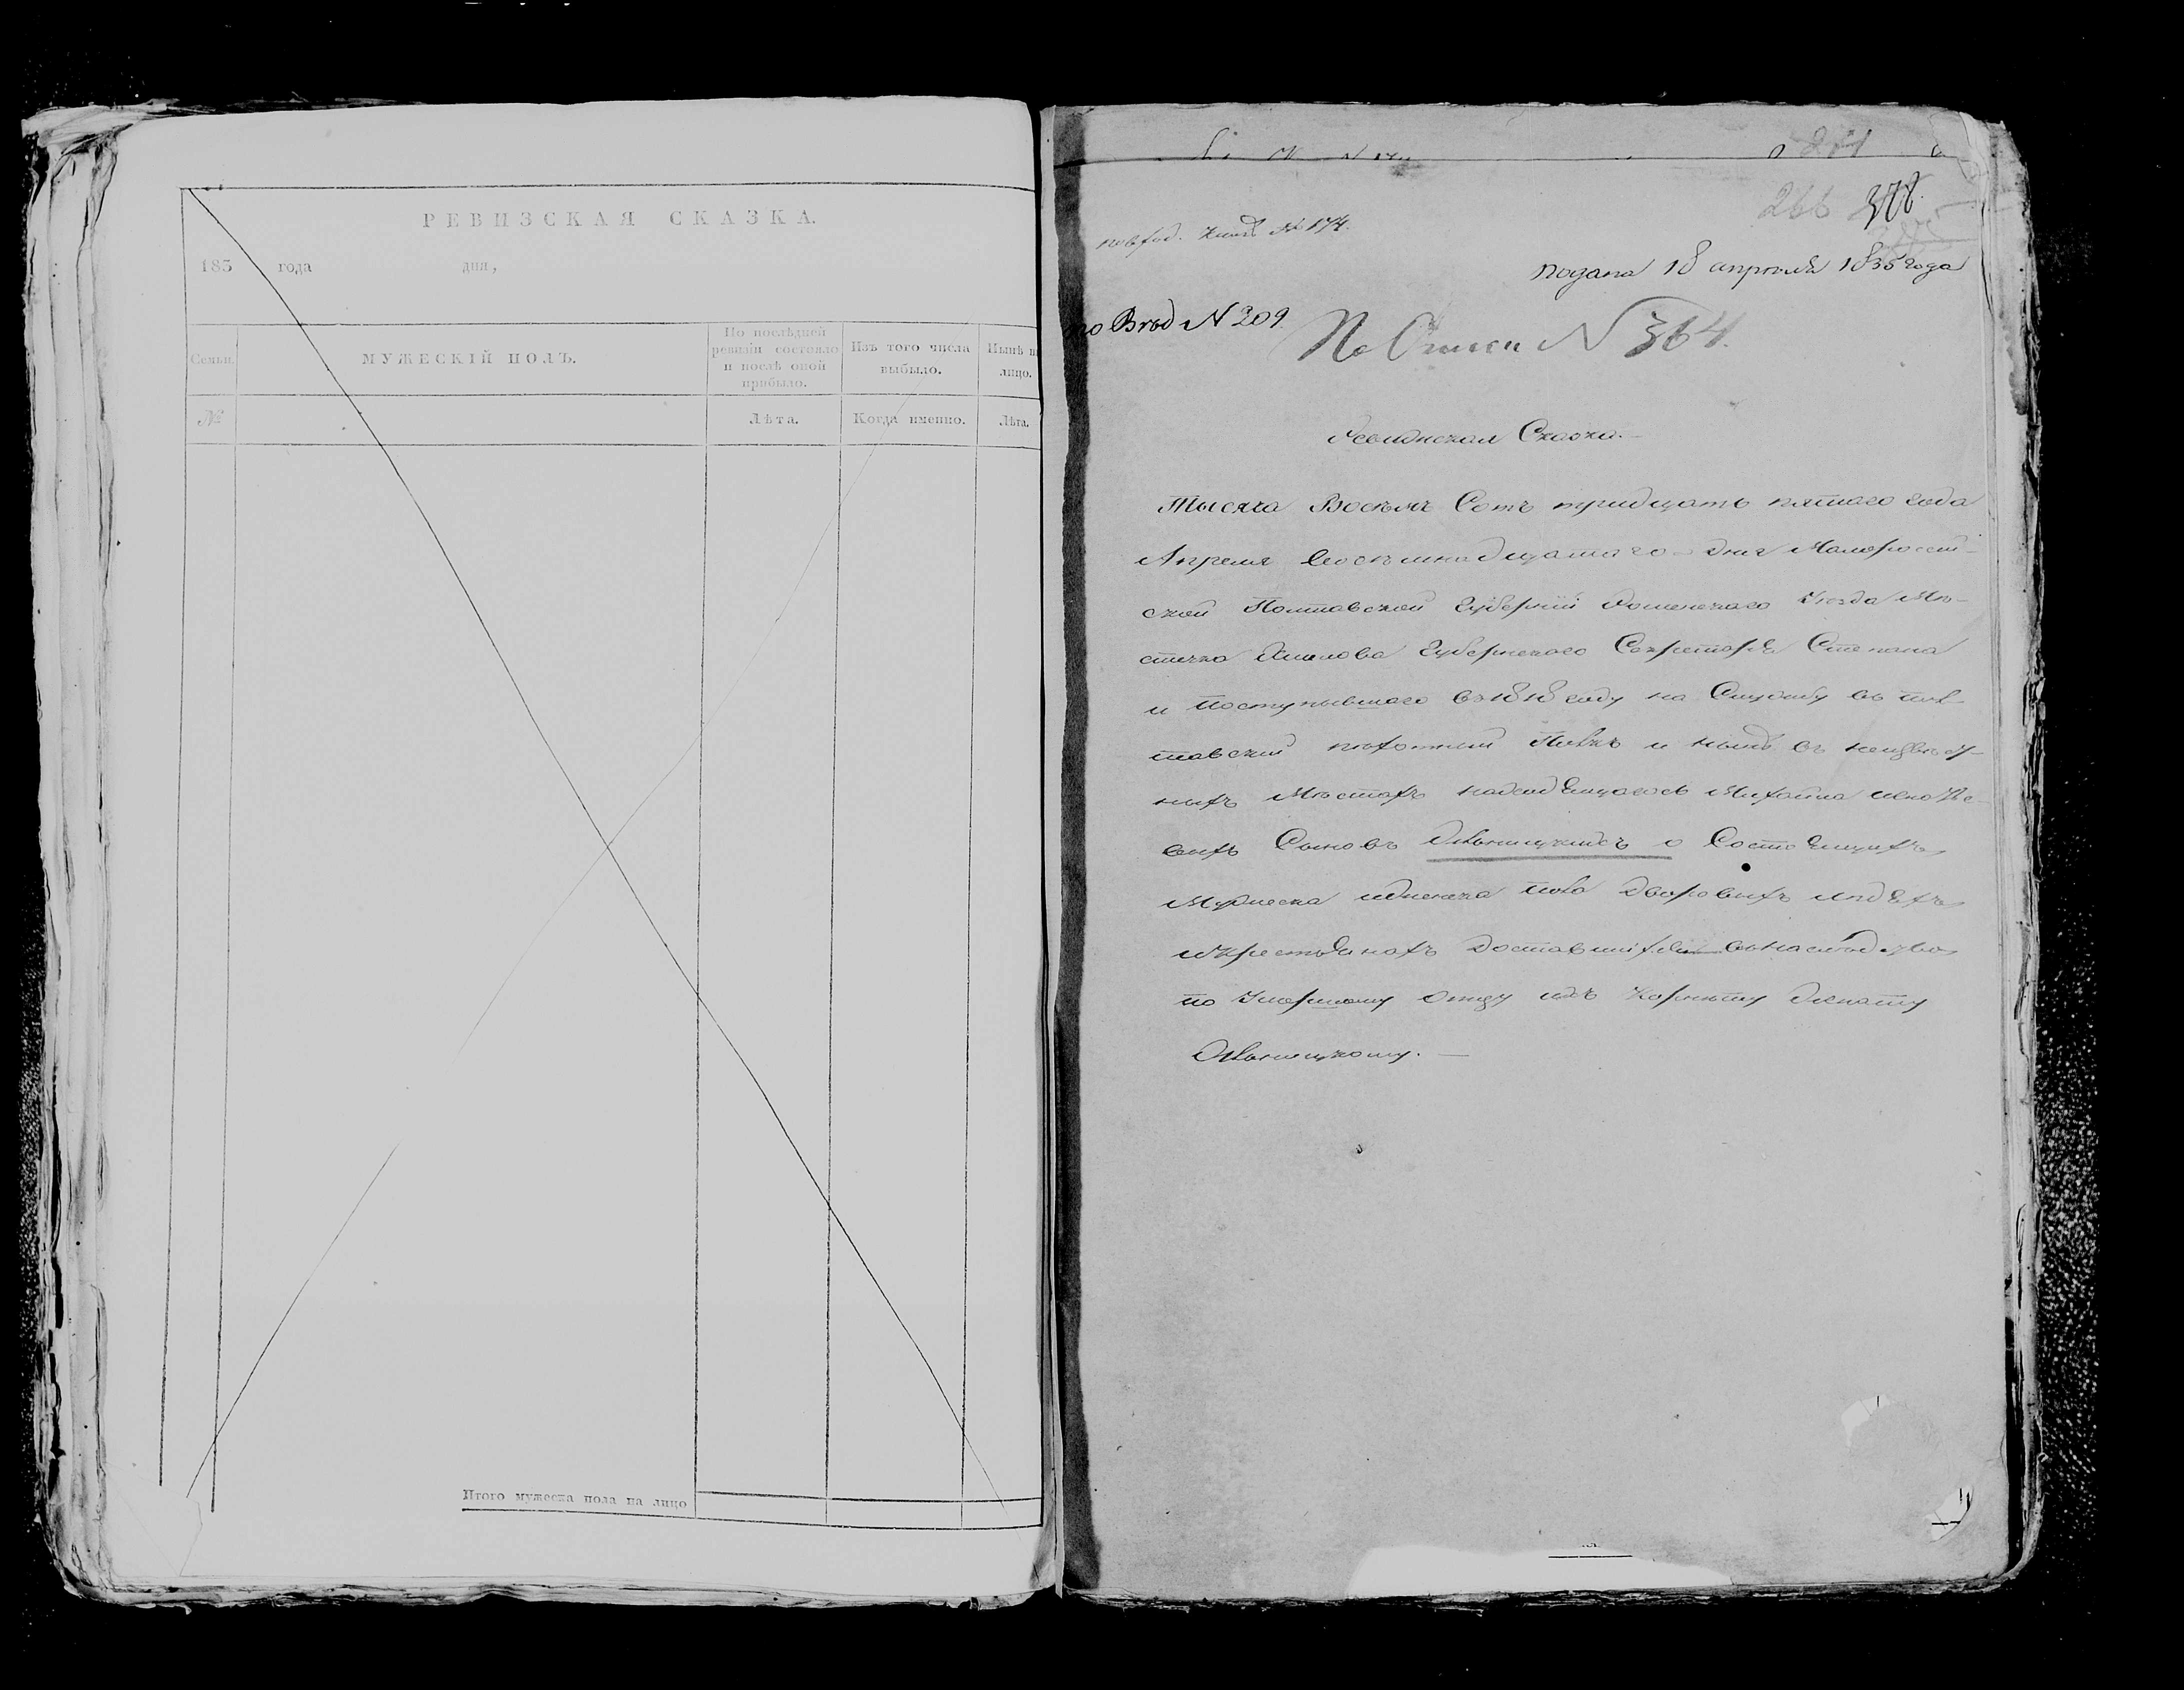 РЕВИЗСКАЯ СКАЗКА.
183 года дня,
Семьи.
МУЖЕСКІЙ ПОЛЪ.
По послѣдней
ревизіи состояло
и послѣ оной
прибыло.
Изъ того числа
выбыло.
Нынѣ н
лицо.
№
Лѣта.
Когда именно.
Лѣта.
Итого мужеска пола на лицо
271
266 378.
по вход. книгѣ № 174.
подана 18 апрѣля 1835 года
по Вход № 209.
По Описи № 364.
Ревизская Сказка.
Тысяча Восемъ Сотъ тридцать пятаго года
Апреля восемнадцатаго дня Малоросій-
ской Полтавской Губерніи Роменскаго Уезда Мѣ-
стечка Смелова Губернскаго Секретаря Степана
и поступившаго в 1818 году на Службу въ пол
тавский пехотный Полкъ и ныне въ неизвест-
ныхъ Местахъ находящагося Михайла
Сыновъ о Состоящихъ
Мужеска и женска пола дворовыхъ людяхъ
и крестьянахъ доставшихся в наследство
по Умершому отцу ихъ Корнету Игнату